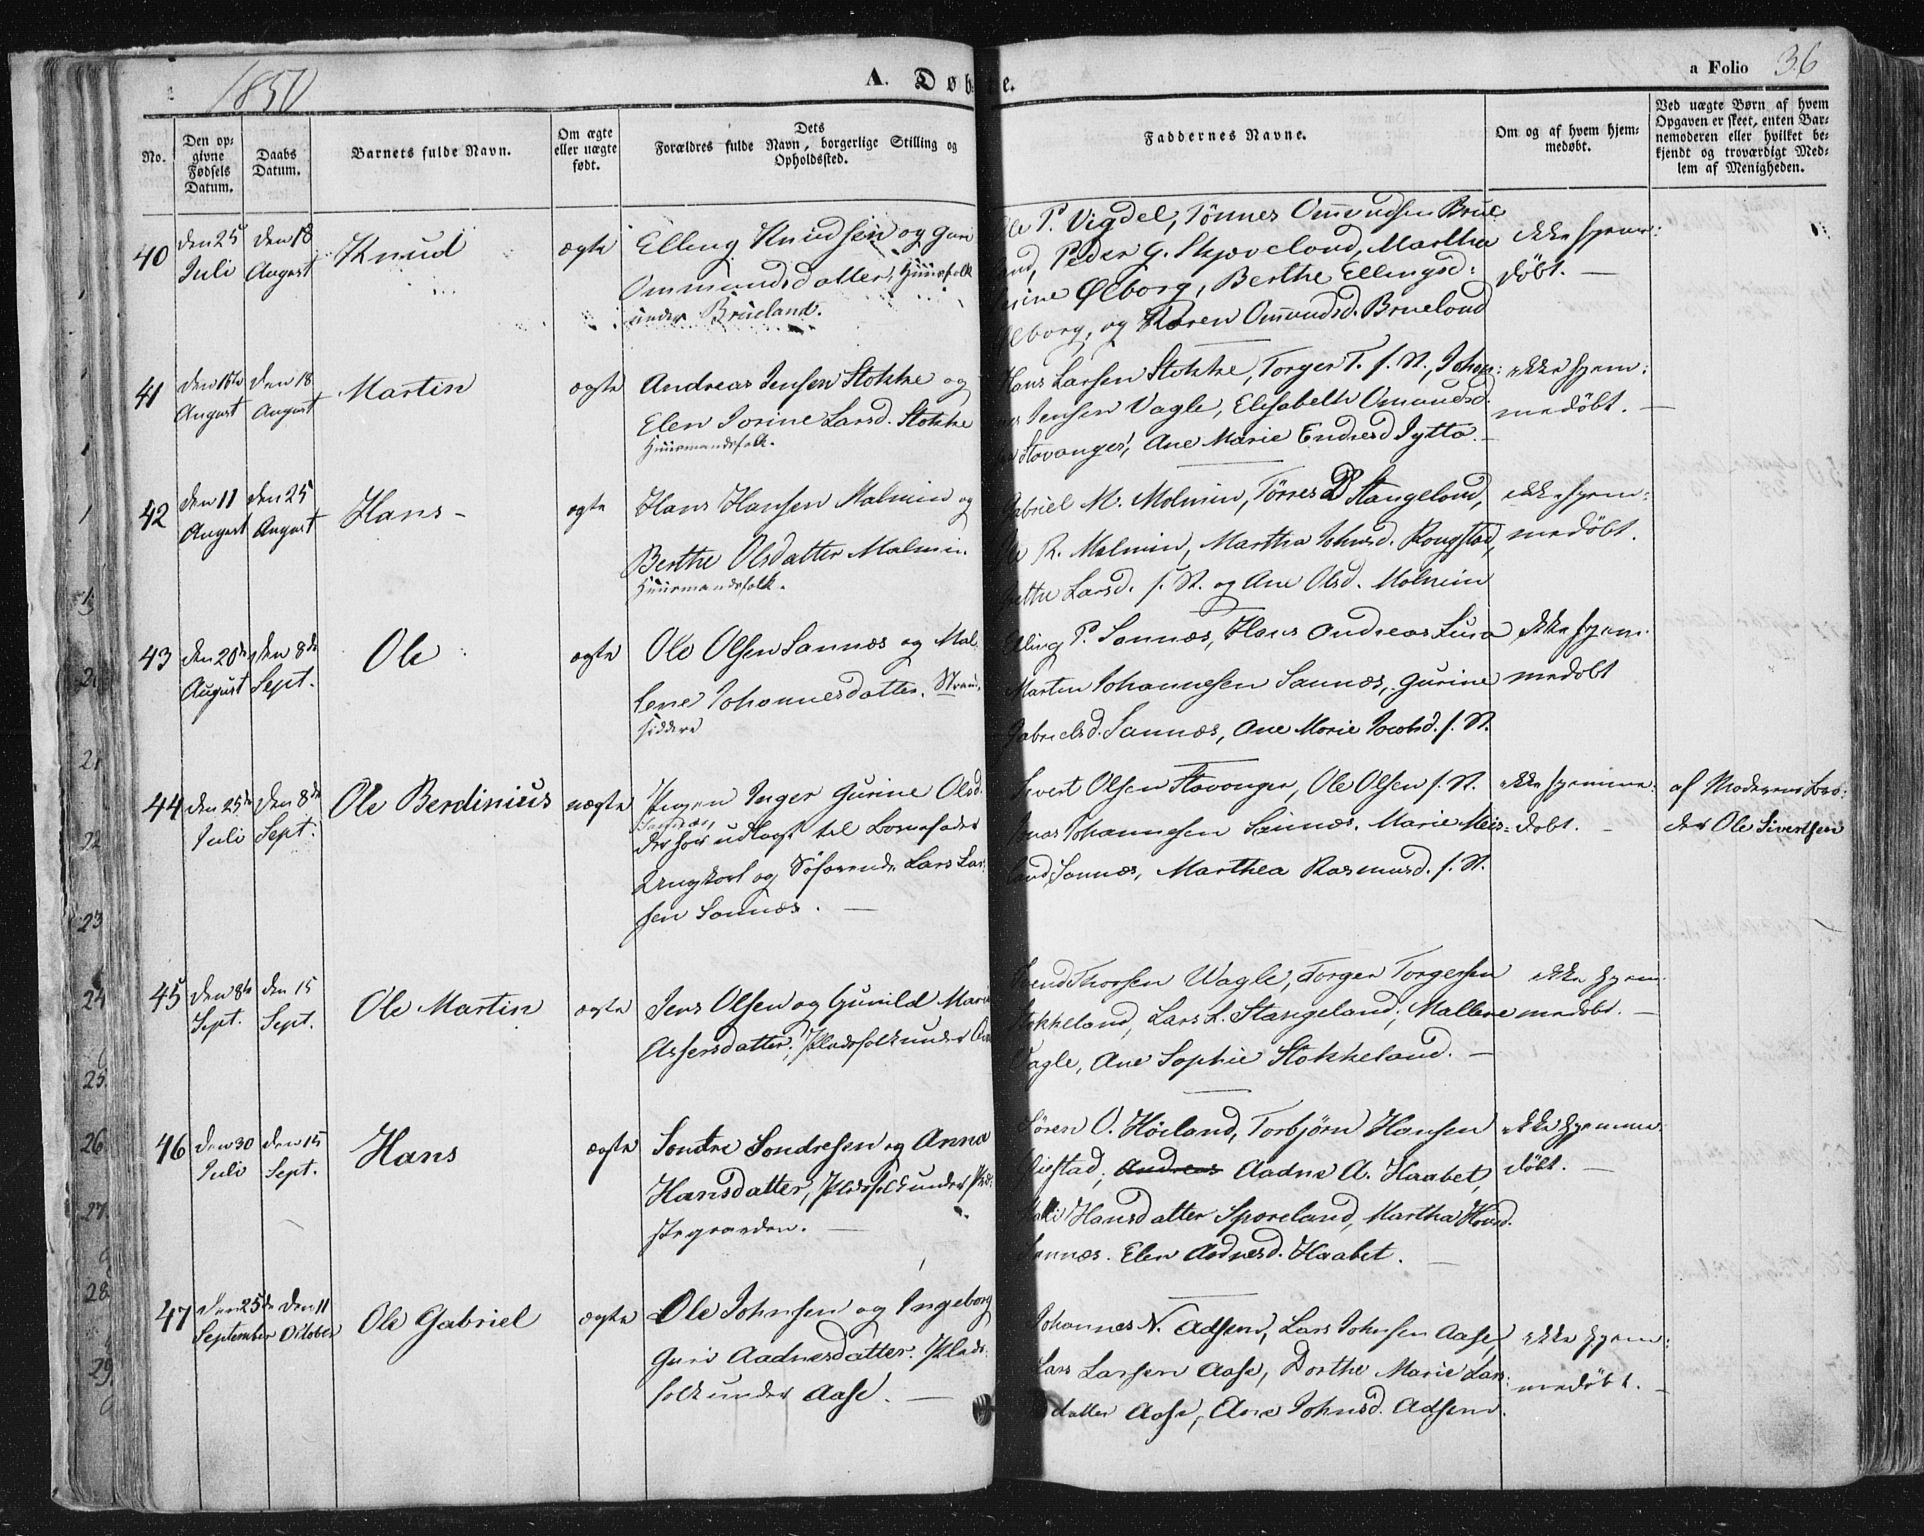 1850
A. Døbte.
a Folio 36
No.
Den opgivne Fødsels Datum.
Daabs Datum.
Barnets fulde Navn.
Om ægte eller uægte født.
Dets Forældres fulde Navn, borgerlige Stilling og Opholdssted.
Faddernes Navne.
Om og af hvem hjemmedøbt.
Ved uægte Børn af hvem Opgaven er skeet, enten Barnemoderen eller hvilket bekjendt og troværdigt Medlem af Menigheden.
40 den 25 Juli den 18 August Knud ægte
Elling Knudsen og Guri
Ommundsdatter, Huusfolk
under Brueland.
P. Vigdel, Tønnes Omundsen Brue
land, Peder G. Skjæveland, Martha
Ølborg, Berthe Ellingsd:
Ølborg, og Karen Omundsd. Brueland
ikke hjem:
døbt. —
41 den 15de August den 18 August Martin ægte
Andreas Jensen Stokke og
Elen Jorine Larsd. Stokke
Huusmandsfolk.
Hans Larsen Stokke, Torger T. s. St., Johan:
nes Jensen Vagle, Elisabeth Omundsd.
Stavanger, Ane Marie Endresd Jytta.
ikke hjem:
medøbt. —
42 den 11 August den 25 August Hans — ægte
Hans Hansen Malmin og
Berthe Olsdatter Malmin.
Huusmandsfolk.
Gabriel M. Malmin, Tørres B Stangeland,
Ole R. Malmin, Martha Johnsd. Rougstad,
Grethe Larsd. s. St. og Ane Olsd. Malmin
ikke hjem:
medøbt.
43 den 20de August den 8de Sept. Ole ægte
Ole Olsen Sannæs og Mal
lene Johannesdatter. Strand
siddere
Elling P. Sannæs, Hans Andreas Lura
Marten Johannesen Sannæs, Gurine
Gabrielsd. Sannæs, Ane Marie Jacobsd. s. St.
ikke hjem
medøbt
44 den 25de Juli den 8de Sept. Ole Berdinius uægte
Pigen Inger Gurine Olsd.
Sannæs,
der har udlagt til Barnefader
Ungkarl og Søfarende Lars Lar
sen Sannæs. —
Sivert Olsen Stavanger, Ole Olsen s. St.
Jonas Johannesen Sannæs, Marie Meis=
land Sannæs, Marthea Rasmusd. s. St.
ikke hjemme
døbt. —
af Moderens Bro:
der Ole Sivertsen
45 den 8de Sept. den 15 Sept. Ole Martin ægte
Jens Olsen og Gunild Marie
Assersdatter. Pladsfolk under
Svend Thorsen Wagle, Torger Torgersen
Stokkeland, Lars L. Stangeland, Mallene
Vagle, Ane Sophie Stokkeland. —
ikke hjem
medøbt. —
46 den 30 Juli den 15 Sept. Hans ægte
Sondre Sondresen og Anna
Hansdatter, Pladsfolk under Præ:
stegaarden. —
Søren O. Høiland, Torbjørn Hansen
Andreas Aadne A. Haabet,
Malli Hansdatter Sporeland, Martha Hansd.
Sannæs. Elen Aadnesd. Haabet. —
ikke hjemme
døbt. —
47 den 25de September den 11 October Ole Gabriel ægte
Ole Johnsen og Ingeborg
Guri Aadnesdatter. Plads
folk under Aase. —
Johannes N. Adsen, Lars Johnsen Aase,
Lars Larsen Aase, Dorthe Marie Lars:
datter Aase, Ane Johnsd. Adsen.
ikke hjem:
medøbt. —
21
22
23
24
25
26
27
28
29